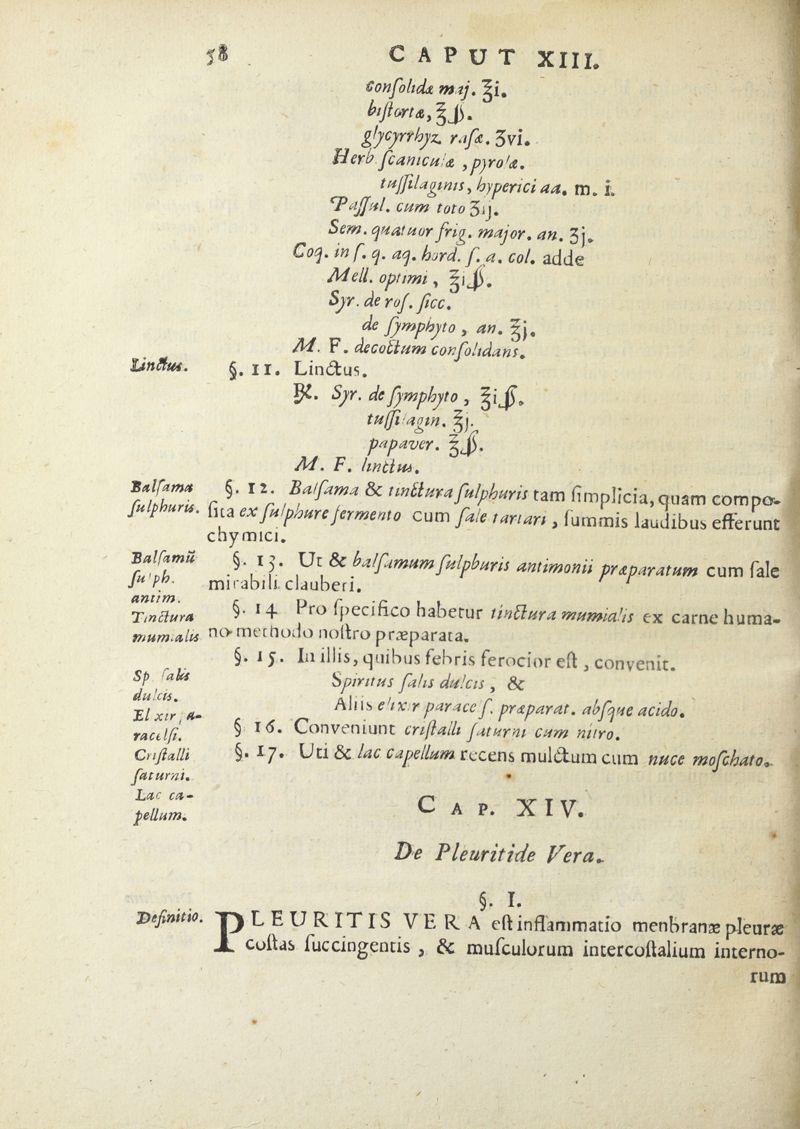 58 CAPUT XIII.
Conſolidæ maj. ℥i.
biſtortæ, ℥ſſ.
glycyrrhyz. raſæ. ʒvi.
Herb ſcaniculæ, pyrolæ.
tuſſilaginis, hyperici aa. m. i.
Paſſul. cum toto ʒij.
Sem. quatuor frig. major. an. ʒj.
Coq. in ſ. q. aq. hord. ſ. a. col. adde
Mell. optimi, ℥iſſ.
Syr. de roſ. ſicc.
de ſymphyto, an. ℥j.
M. F. decoctum conſolidans.
Linctus. §. 11. Linctus.
℞. Syr. de ſymphyto, ℥iſſ.
tuſſilagin. ℥j.
papaver. ℥ſſ.
M. F. linctus.
Balſama §. 12. Balſama & tinctura ſulphuris tam ſimplicia, quam compo-
ſulphuris. ſita ex ſulphure fermento cum ſale tartari, ſummis laudibus efferunt
chymici.
Balſamū §. 13. Ut & balſamum ſulphuris antimonii præparatum cum ſale
ſulph. mirabili clauberi.
antim.
Tinctura §. 14 Pro ſpecifico habetur tinctura mumialis ex carne huma-
mumialis no methodo noſtro præparata.
§. 15. In illis, quibus febris ferocior eſt, convenit.
Sp ſalis Spiritus ſalis dulcis, &
dulcis.
Elxir, a- Aliis elixir paraceſ. præparat. abſque acido.
racelſi. § 16. Conveniunt criſtalli ſaturni cum nitro.
Criſtalli §. 17. Uti & lac capellum recens mulctum cum nuce moſchato.
ſaturni.
Lac ca-
pellum.
CAP. XIV.
De Pleuritide Vera.
§. I.
Definitio. PLEURITIS VERA eſt inflammatio menbranæ pleuræ
coſtas ſuccingentis, & muſculorum intercoſtalium interno-
rum